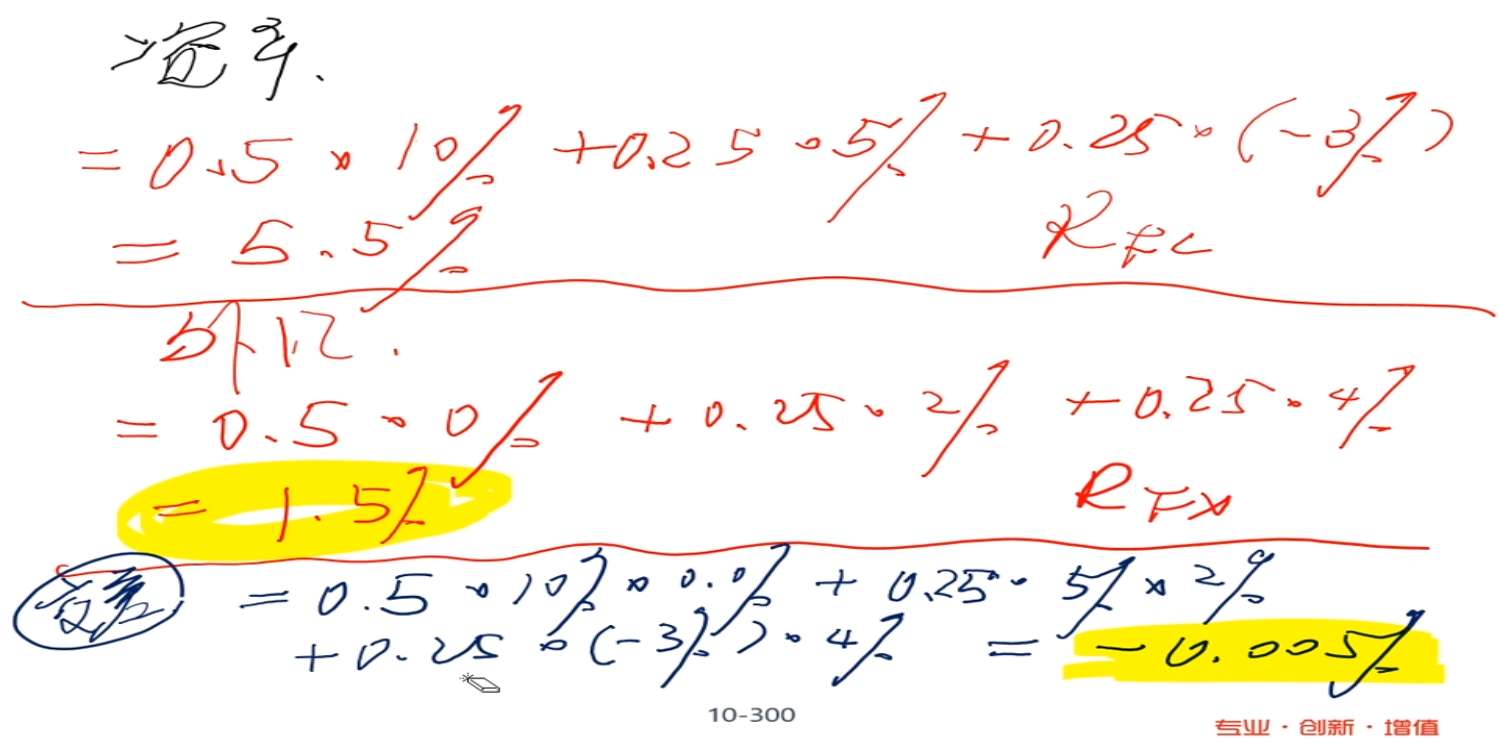 资产.
= 0.5 × 10% + 0.25 × 5% + 0.25 × (-3%)
= 5.5%
R FC
外汇.
= 0.5 × 0% + 0.25 × 2% + 0.25 × 4%
= 1.5%
R FX
= 0.5 × 10% × 0.0% + 0.25 × 5% × 2%
+ 0.25 × (-3%) × 4% = -0.005%
10-300
专业·创新·增值